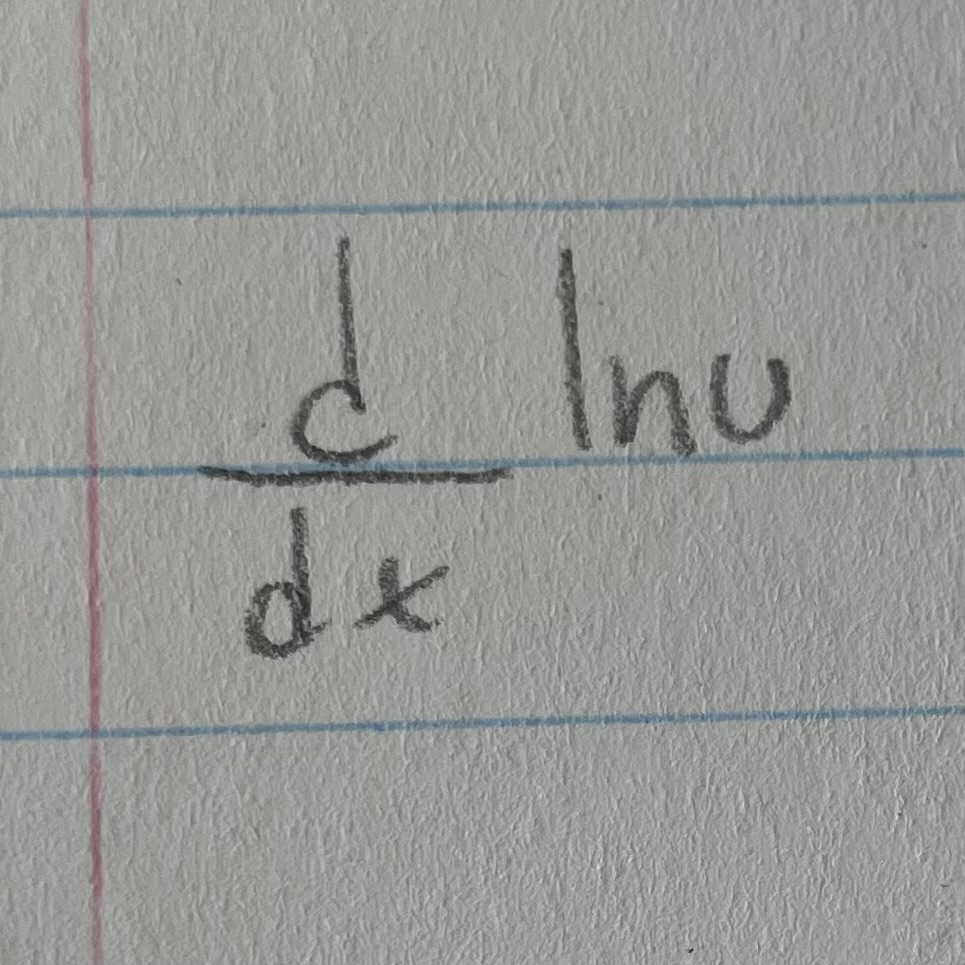 d/dx ln u